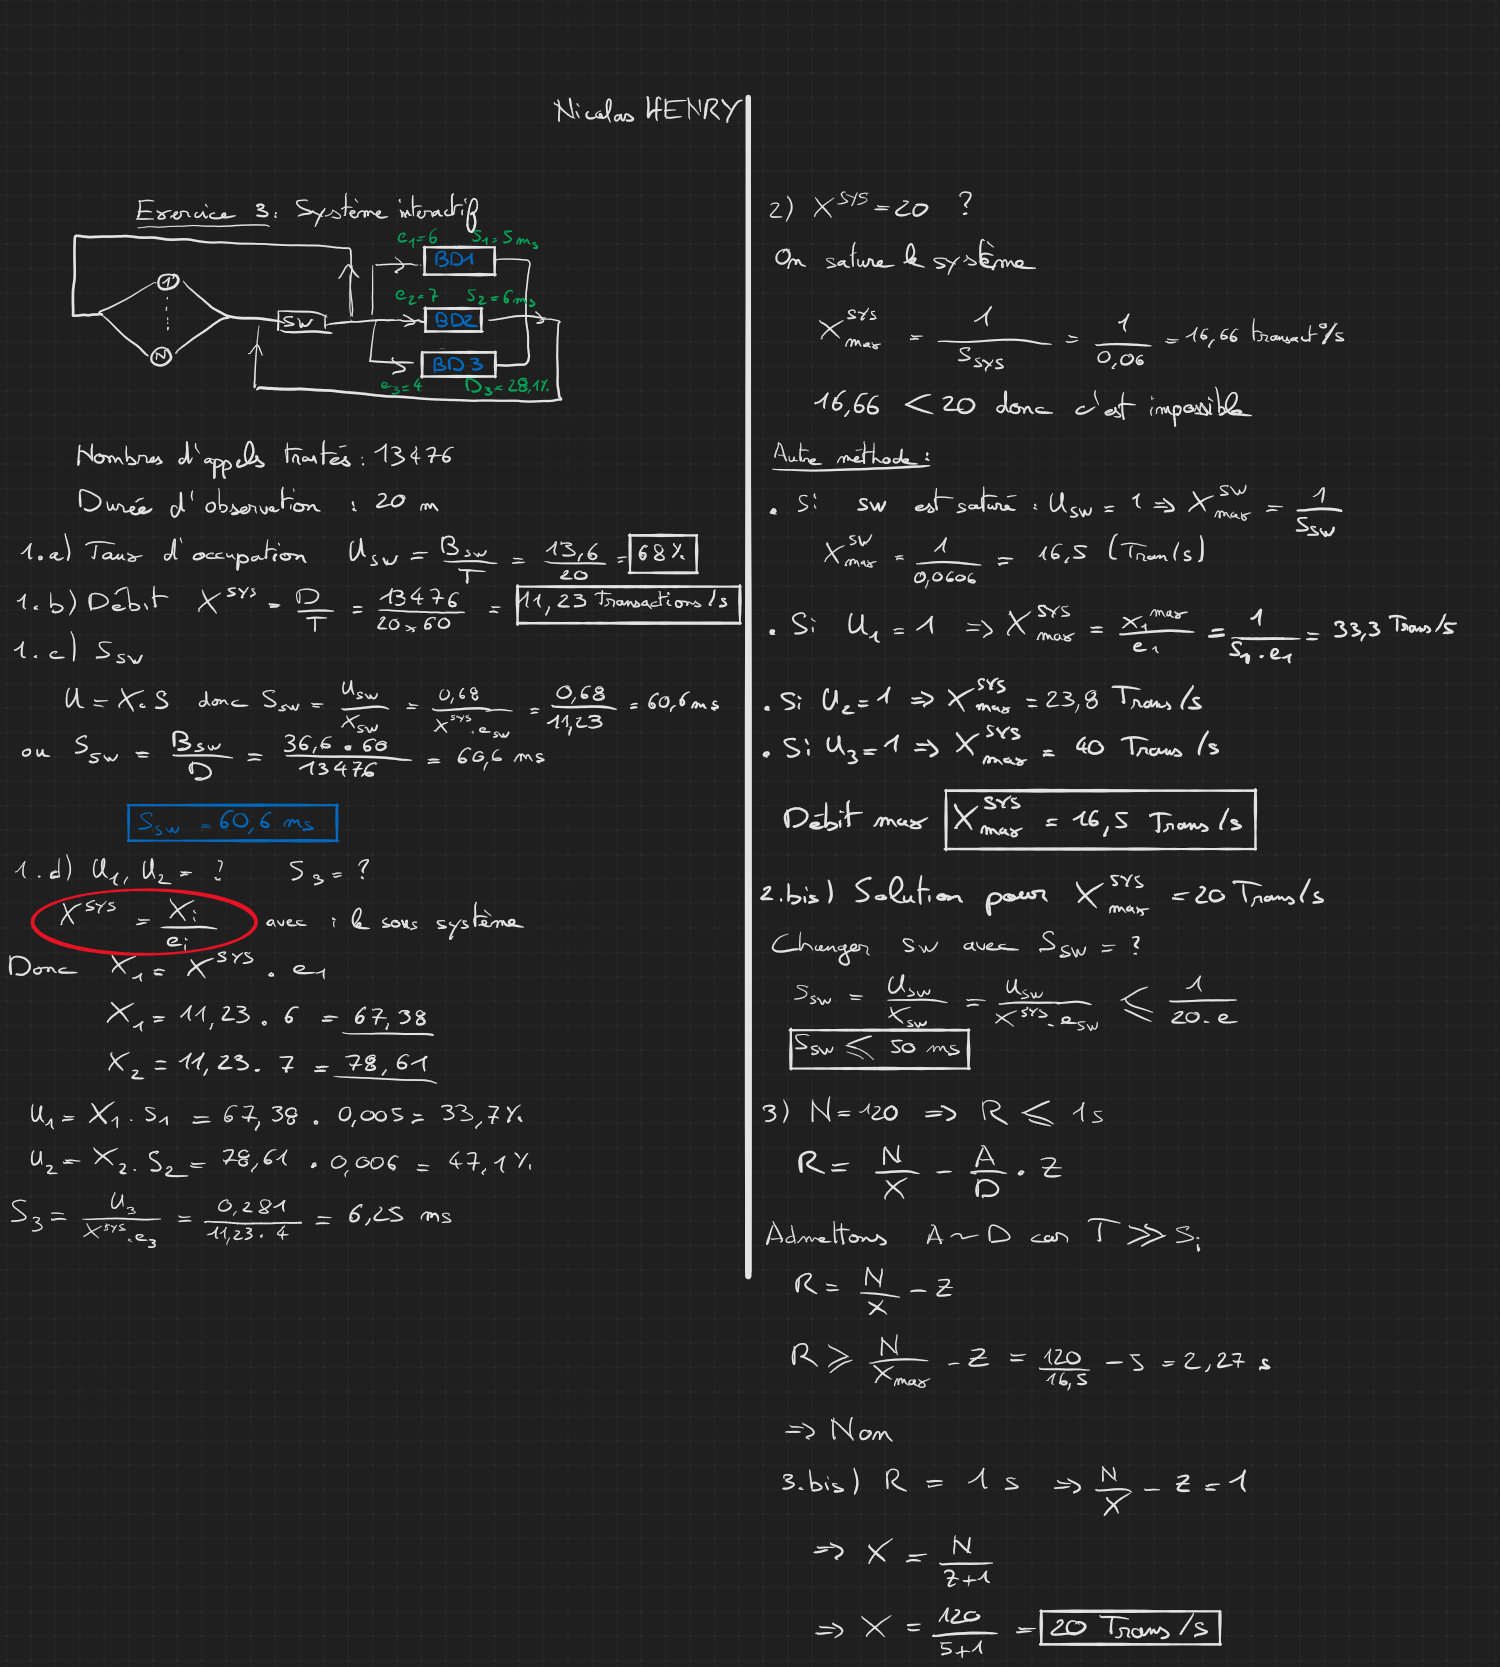 Nicolas HENRY
Exercice 3: Système interactif
e₁=6 S₁=5ms
BD1
1
e₂=7 S₂=6ms
SW
BD2
N
BD3
e₃=4 D₃=28,1%
Nombres d'appels traités : 13476
Durée d'observation : 20 m
1.a) Taux d'occupation U_SW = B_SW/T = 13,6/20 = 68%
1.b) Débit X^SYS = D/T = 13476/(20×60) = 11,23 Transactions/s
1.c) S_SW
U = X.S donc S_SW = U_SW/X_SW = 0,68/(X^SYS.e_SW) = 0,68/11,23 = 60,6 ms
ou S_SW = B_SW/D = 36,6.60/13476 = 60,6 ms
S_SW = 60,6 ms
1.d) U₁, U₂ = ? S₃ = ?
X^SYS = X_i/e_i avec i le sous système
Donc X₁ = X^SYS . e₁
X₁ = 11,23 . 6 = 67,38
X₂ = 11,23 . 7 = 78,61
U₁ = X₁ . S₁ = 67,38 . 0,005 = 33,7%
U₂ = X₂ . S₂ = 78,61 . 0,006 = 47,1%
S₃ = U₃/(X^SYS.e₃) = 0,281/(11,23.4) = 6,25 ms
2) X^SYS = 20 ?
On sature le système
X^SYS_max = 1/S_SYS = 1/0,06 = 16,66 transact°/s
16,66 < 20 donc c'est impossible
Autre méthode :
. Si SW est saturé : U_SW = 1 ⇒ X^SW_max = 1/S_SW
X^SW_max = 1/0,0606 = 16,5 (Tran/s)
. Si U₁ = 1 ⇒ X^SYS_max = X₁^max/e₁ = 1/(S₁.e₁) = 33,3 Trans/s
. Si U₂ = 1 ⇒ X^SYS_max = 23,8 Trans/s
. Si U₃ = 1 ⇒ X^SYS_max = 40 Trans/s
Débit max X^SYS_max = 16,5 Trans/s
2.bis) Solution pour X^SYS_max = 20 Trans/s
Changer SW avec S_SW = ?
S_SW = U_SW/X_SW = U_SW/(X^SYS.e_SW) ⩽ 1/(20.e)
S_SW ⩽ 50 ms
3) N = 120 ⇒ R ⩽ 1s
R = N/X - A/D . Z
Admettons A ~ D car T ≫ S_i
R = N/X - Z
R ⩾ N/X_max - Z = 120/16,5 - 5 = 2,27 s
⇒ Non
3.bis) R = 1 s ⇒ N/X - Z = 1
⇒ X = N/(Z+1)
⇒ X = 120/(5+1) = 20 Trans/s